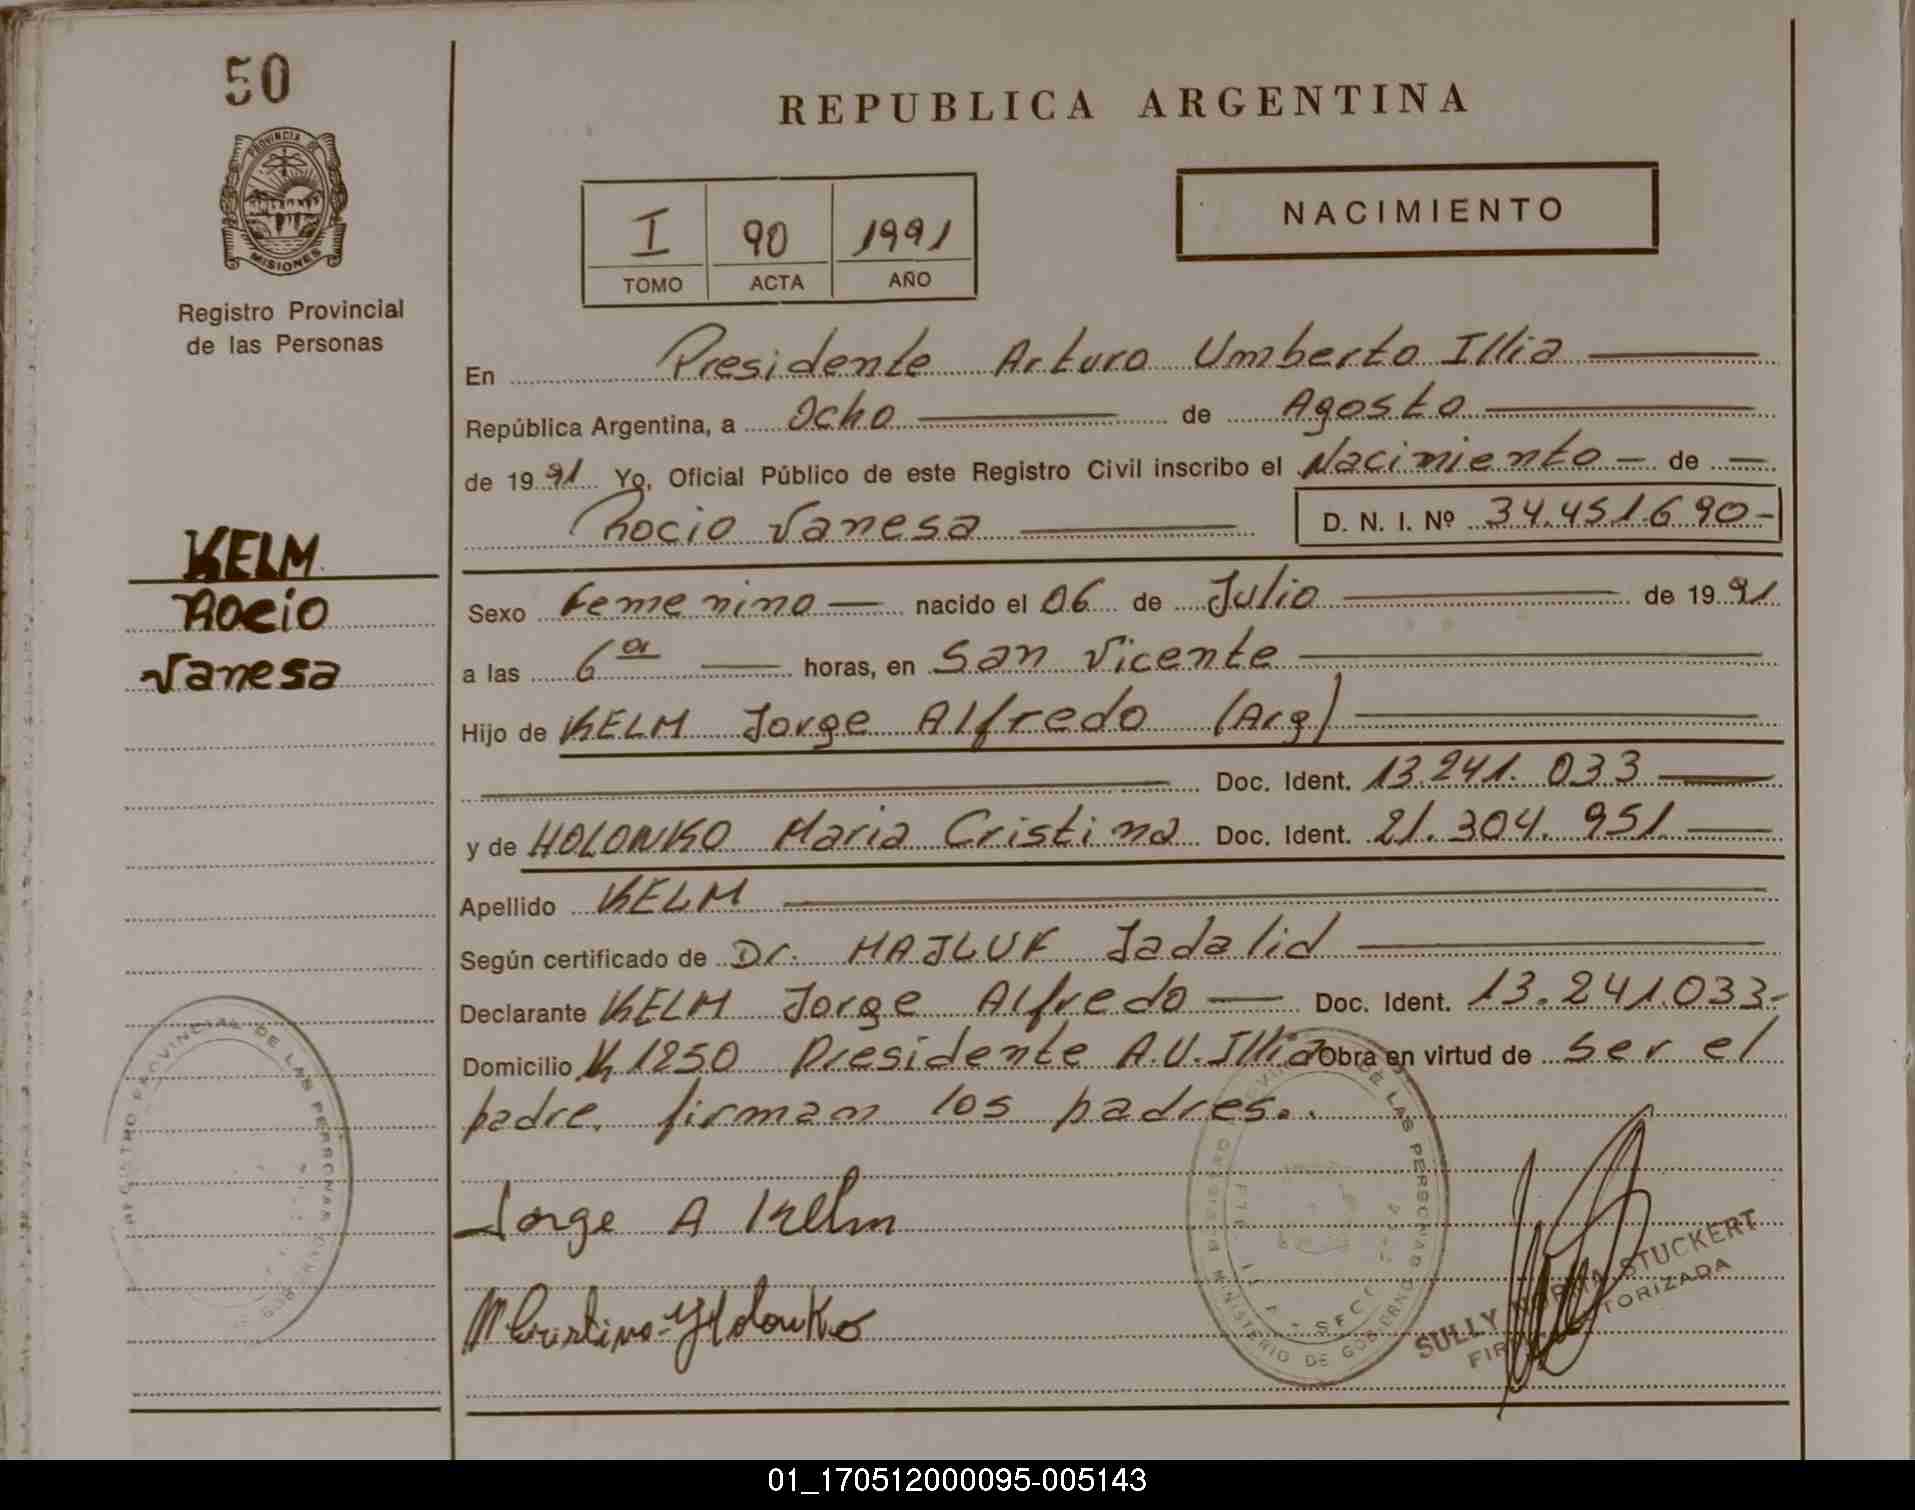 50
PROVINCIA DE
MISIONES
Registro Provincial
de las Personas
KELM
Rocio
Vanesa
REPUBLICA ARGENTINA
NACIMIENTO
I 90 1991
TOMO ACTA AÑO
En Presidente Arturo Umberto Illia
República Argentina, a Ocho de Agosto
de 1991 Yo, Oficial Público de este Registro Civil inscribo el Nacimiento - de -
Rocio Vanesa D. N. I. Nº 34.451.690-
Sexo Femenino nacido el 06 de Julio de 1991
a las 6ª horas, en San Vicente
Hijo de KELM Jorge Alfredo (Arg)
Doc. Ident. 13.241.033
y de HOLONKO Maria Cristina Doc. Ident. 21.304.951
Apellido KELM
Según certificado de Dr. MAJLUF Jadalid
Declarante KELM Jorge Alfredo Doc. Ident. 13.241.033-
Domicilio K 1250 Presidente A.U. Illia Obra en virtud de ser el
padre. firman los padres.
Jorge A Kelm
M Cristina Holonko
REGISTRO PROVINCIAL DE LAS PERSONAS
DE LAS PERSONAS
MINISTERIO DE GOBIERNO
SULLY NORMA STUCKERT
FIRMA AUTORIZADA
01_170512000095-005143